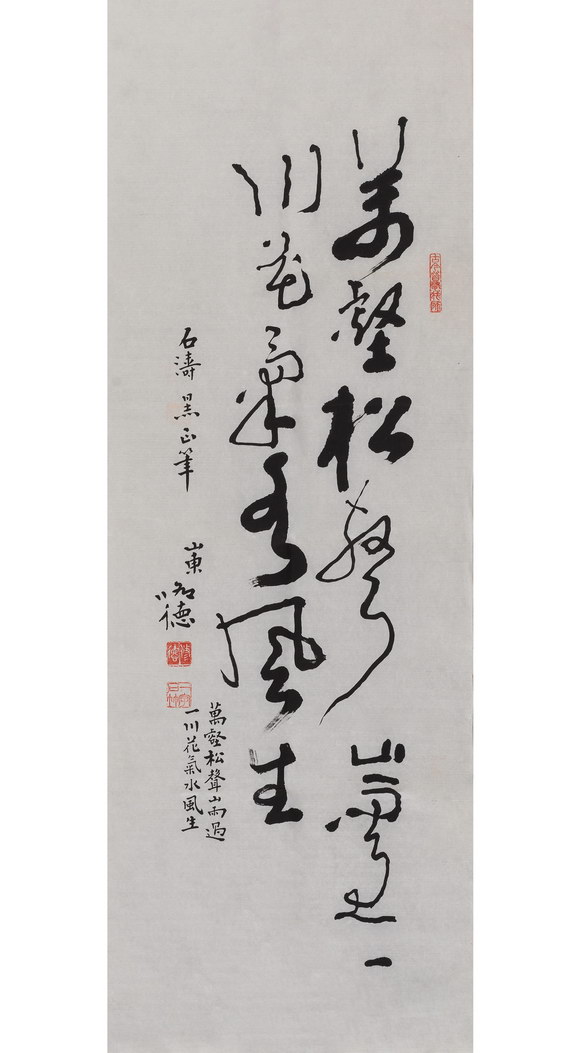 萬壑松聲山雨過一
川花氣水風生
石濤 正筆
山東
德
萬壑松聲山雨過
一川花氣水風生